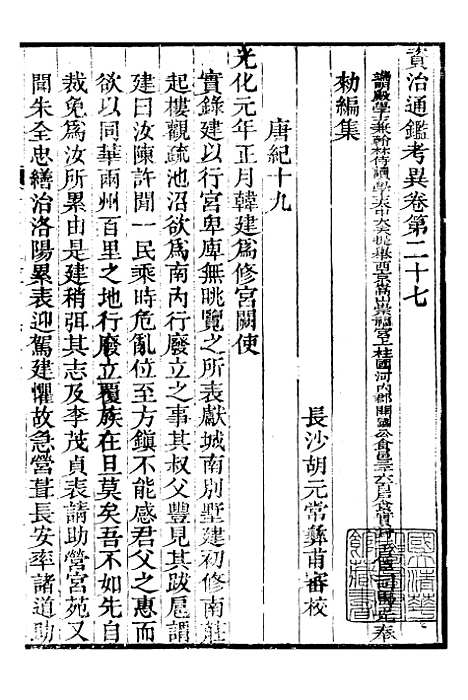 資治通鑑考異卷第二十七
端明殿學士兼翰林侍讀學士太中大夫提舉西京嵩山崇福宮上柱國河內郡開國公食邑二千六百戶食實封壹阡戶臣司馬光奉
勑編集
長沙胡元常彝甫審校
唐紀十九
光化元年正月韓建爲修宮闕使
實錄建以行宮卑庳無眺覽之所表獻城南別墅建初修南莊
起樓觀疏池沼欲爲南內行廢立之事其叔父豐見其跋扈謂
建曰汝陳許閒一民乘時危亂位至方鎭不能感君父之惠而
欲以同華兩州百里之地行廢立覆族在旦莫矣吾不如先自
裁免爲汝所累由是建稍弭其志及李茂貞表請助營宮苑又
聞朱全忠繕治洛陽累表迎駕建懼故急營葺長安率諸道助